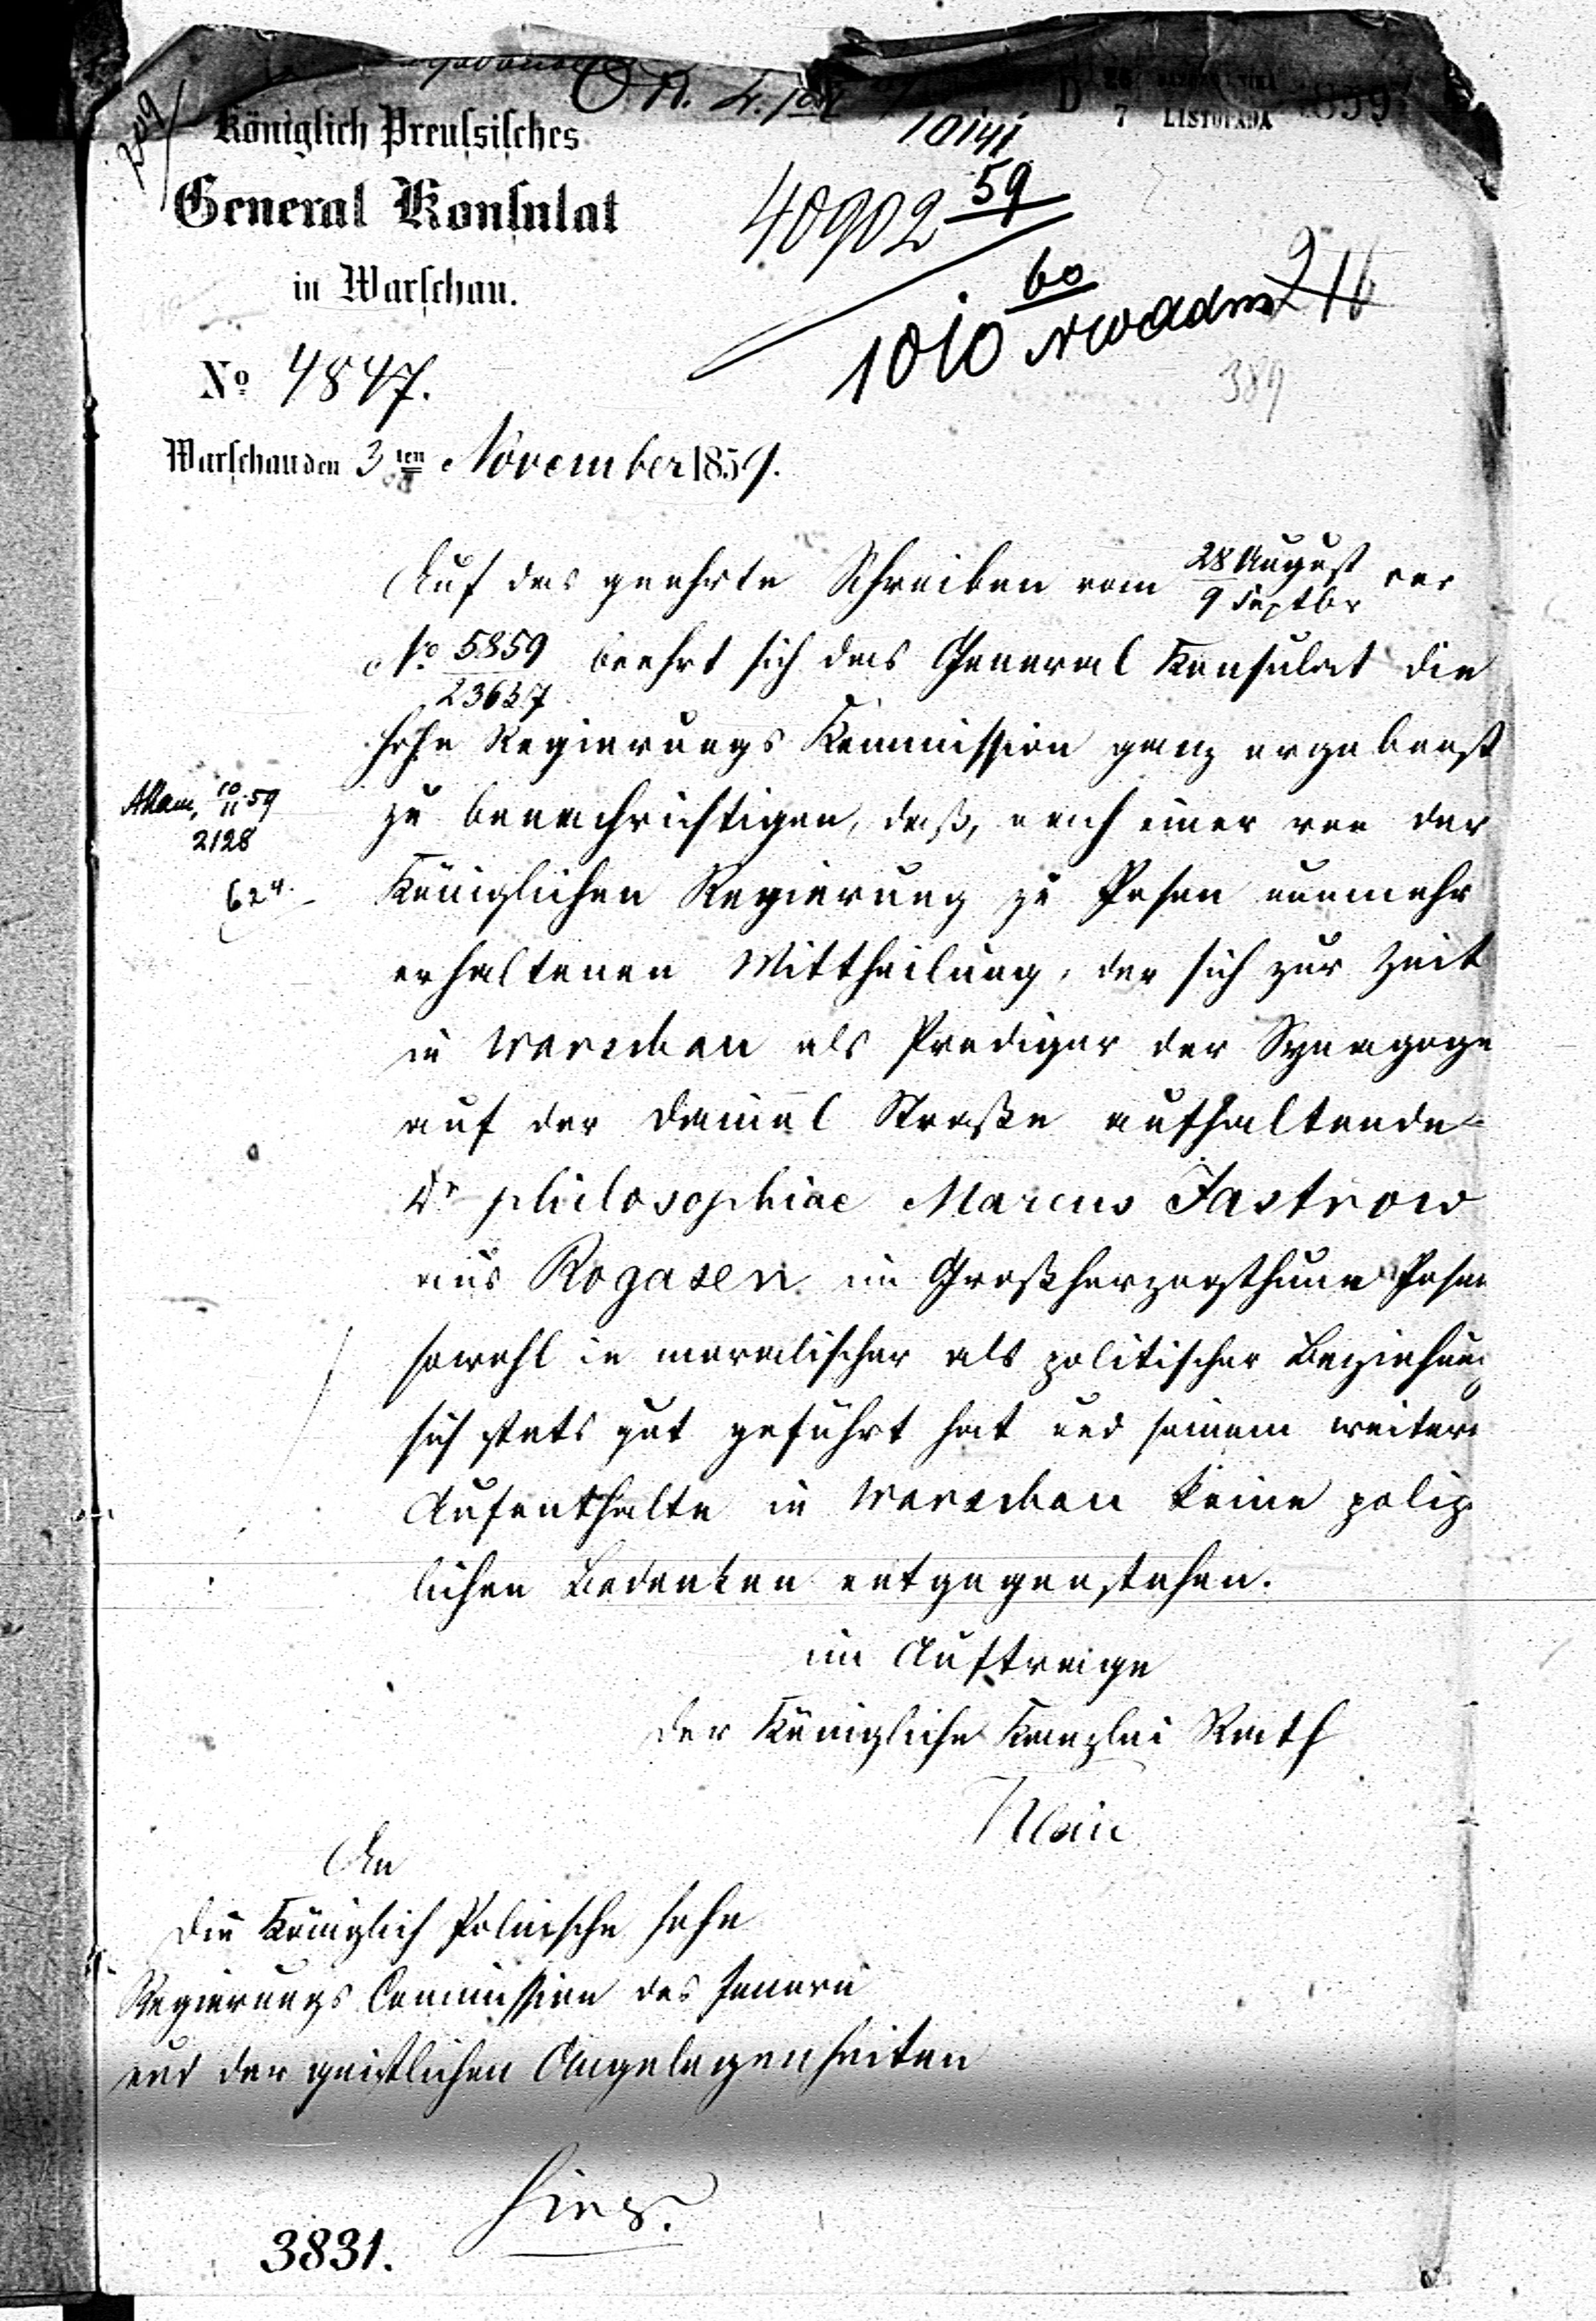 Königlich Preussisches
General Konsulat
in Warschau.
No 4847.
Warschau den 3ten November 1859.
7 LISTOPADA 1859
40902 59
1010 60
216
389
Auf das geehrte Schreiben vom 28 August / 9 Septbr
No 5859 / 23637 beehrt sich das General Konsulat die
hohe Regierungs Kommission ganz ergebenst
zu benachrichtigen, daß, nach einer von der
Königlichen Regierung zu Posen nunmehr
erhaltenen Mittheilung, der sich zur Zeit
in Warschau als Prediger der Synagoge
auf der Daniel Straße aufhaltende
Dr philosophiae Marcus Jastrow
aus Rogasen im Großherzogthum Posen
sowohl in moralischer als politischer Beziehung
sich stets gut geführt hat und seinem weitern
Aufenthalte in Warschau keine poliz
lichen Bedenken entgegenstehen.
im Auftrage
der Königliche Kanzlei Rath
An
die Königlich Polnische hohe
Regierungs Commission des Innern
und der geistlichen Angelegenheiten
hier.
2128
624
3831.